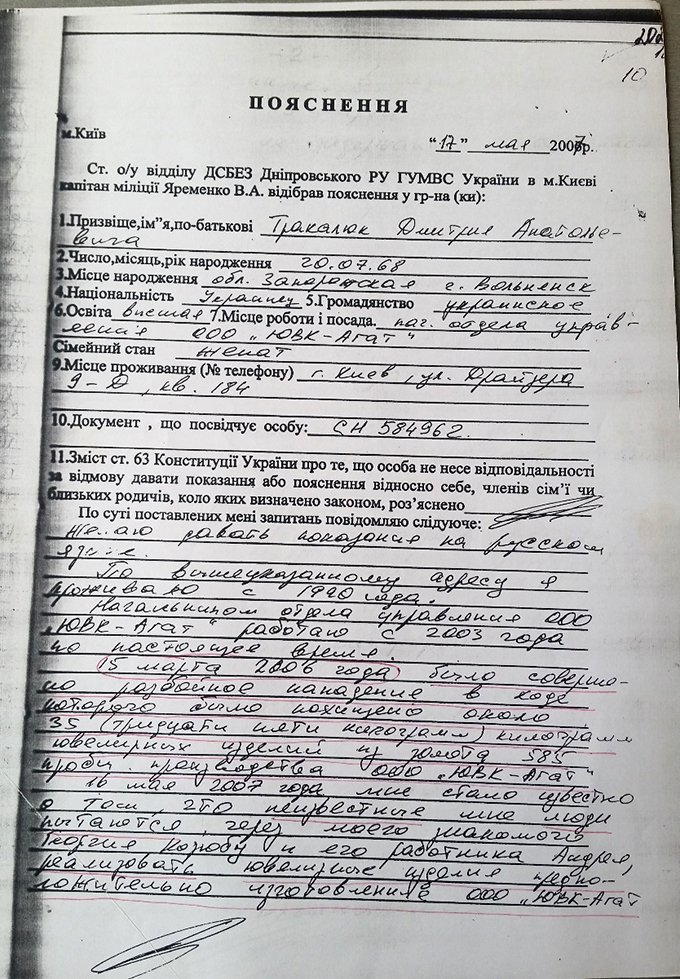 10
ПОЯСНЕННЯ
м.Київ "17" мая 2007р.
Ст. о/у відділу ДСБЕЗ Дніпровського РУ ГУМВС України в м.Києві
капітан міліції Яременко В.А. відібрав пояснення у гр-на (ки):
1.Призвіще,ім"я,по-батькові Тракалюк Дмитрия Анатолье-
вича
2.Число,місяць,рік народження 20.07.68
3.Місце народження обл. Запорожская г. Вольнянск
4.Національність Украинец 5.Громадянство украинское
6.Освіта высшая 7.Місце роботи і посада. нач. отдела управ-
ления ООО „ЮВК-Агат"
Сімейний стан женат
9.Місце проживання (№ телефону) г. Киев, ул. Драйзера
9-Д, кв. 184
10.Документ , що посвідчує особу: СН 584962.
11.Зміст ст. 63 Конституції України про те, що особа не несе відповідальності
за відмову давати показання або пояснення відносно себе, членів сім'ї чи
близьких родичів, коло яких визначено законом, роз'яснено
По суті поставлених мені запитань повідомляю слідуюче:
Желаю давать показания на русском
языке.
По вышеуказанному адресу я
проживаю с 1990 года.
Начальником отдела управления ООО
„ЮВК-Агат" работаю с 2003 года
по настоящее время.
15 марта 2006 года было соверше-
но разбойное нападение в ходе
которого было похищено около
35 (тридцати пяти килограмм) килограмм
ювелирных изделий из золота 585
пробы производства ООО „ЮВК-Агат"
16 мая 2007 года мне стало известно
о том, что неизвестные мне люди
пытаются через моего знакомого
Георгия и его работника Андрея,
реализовать ювелирные изделия предпо-
ложительно изготовления ООО „ЮВК-Агат